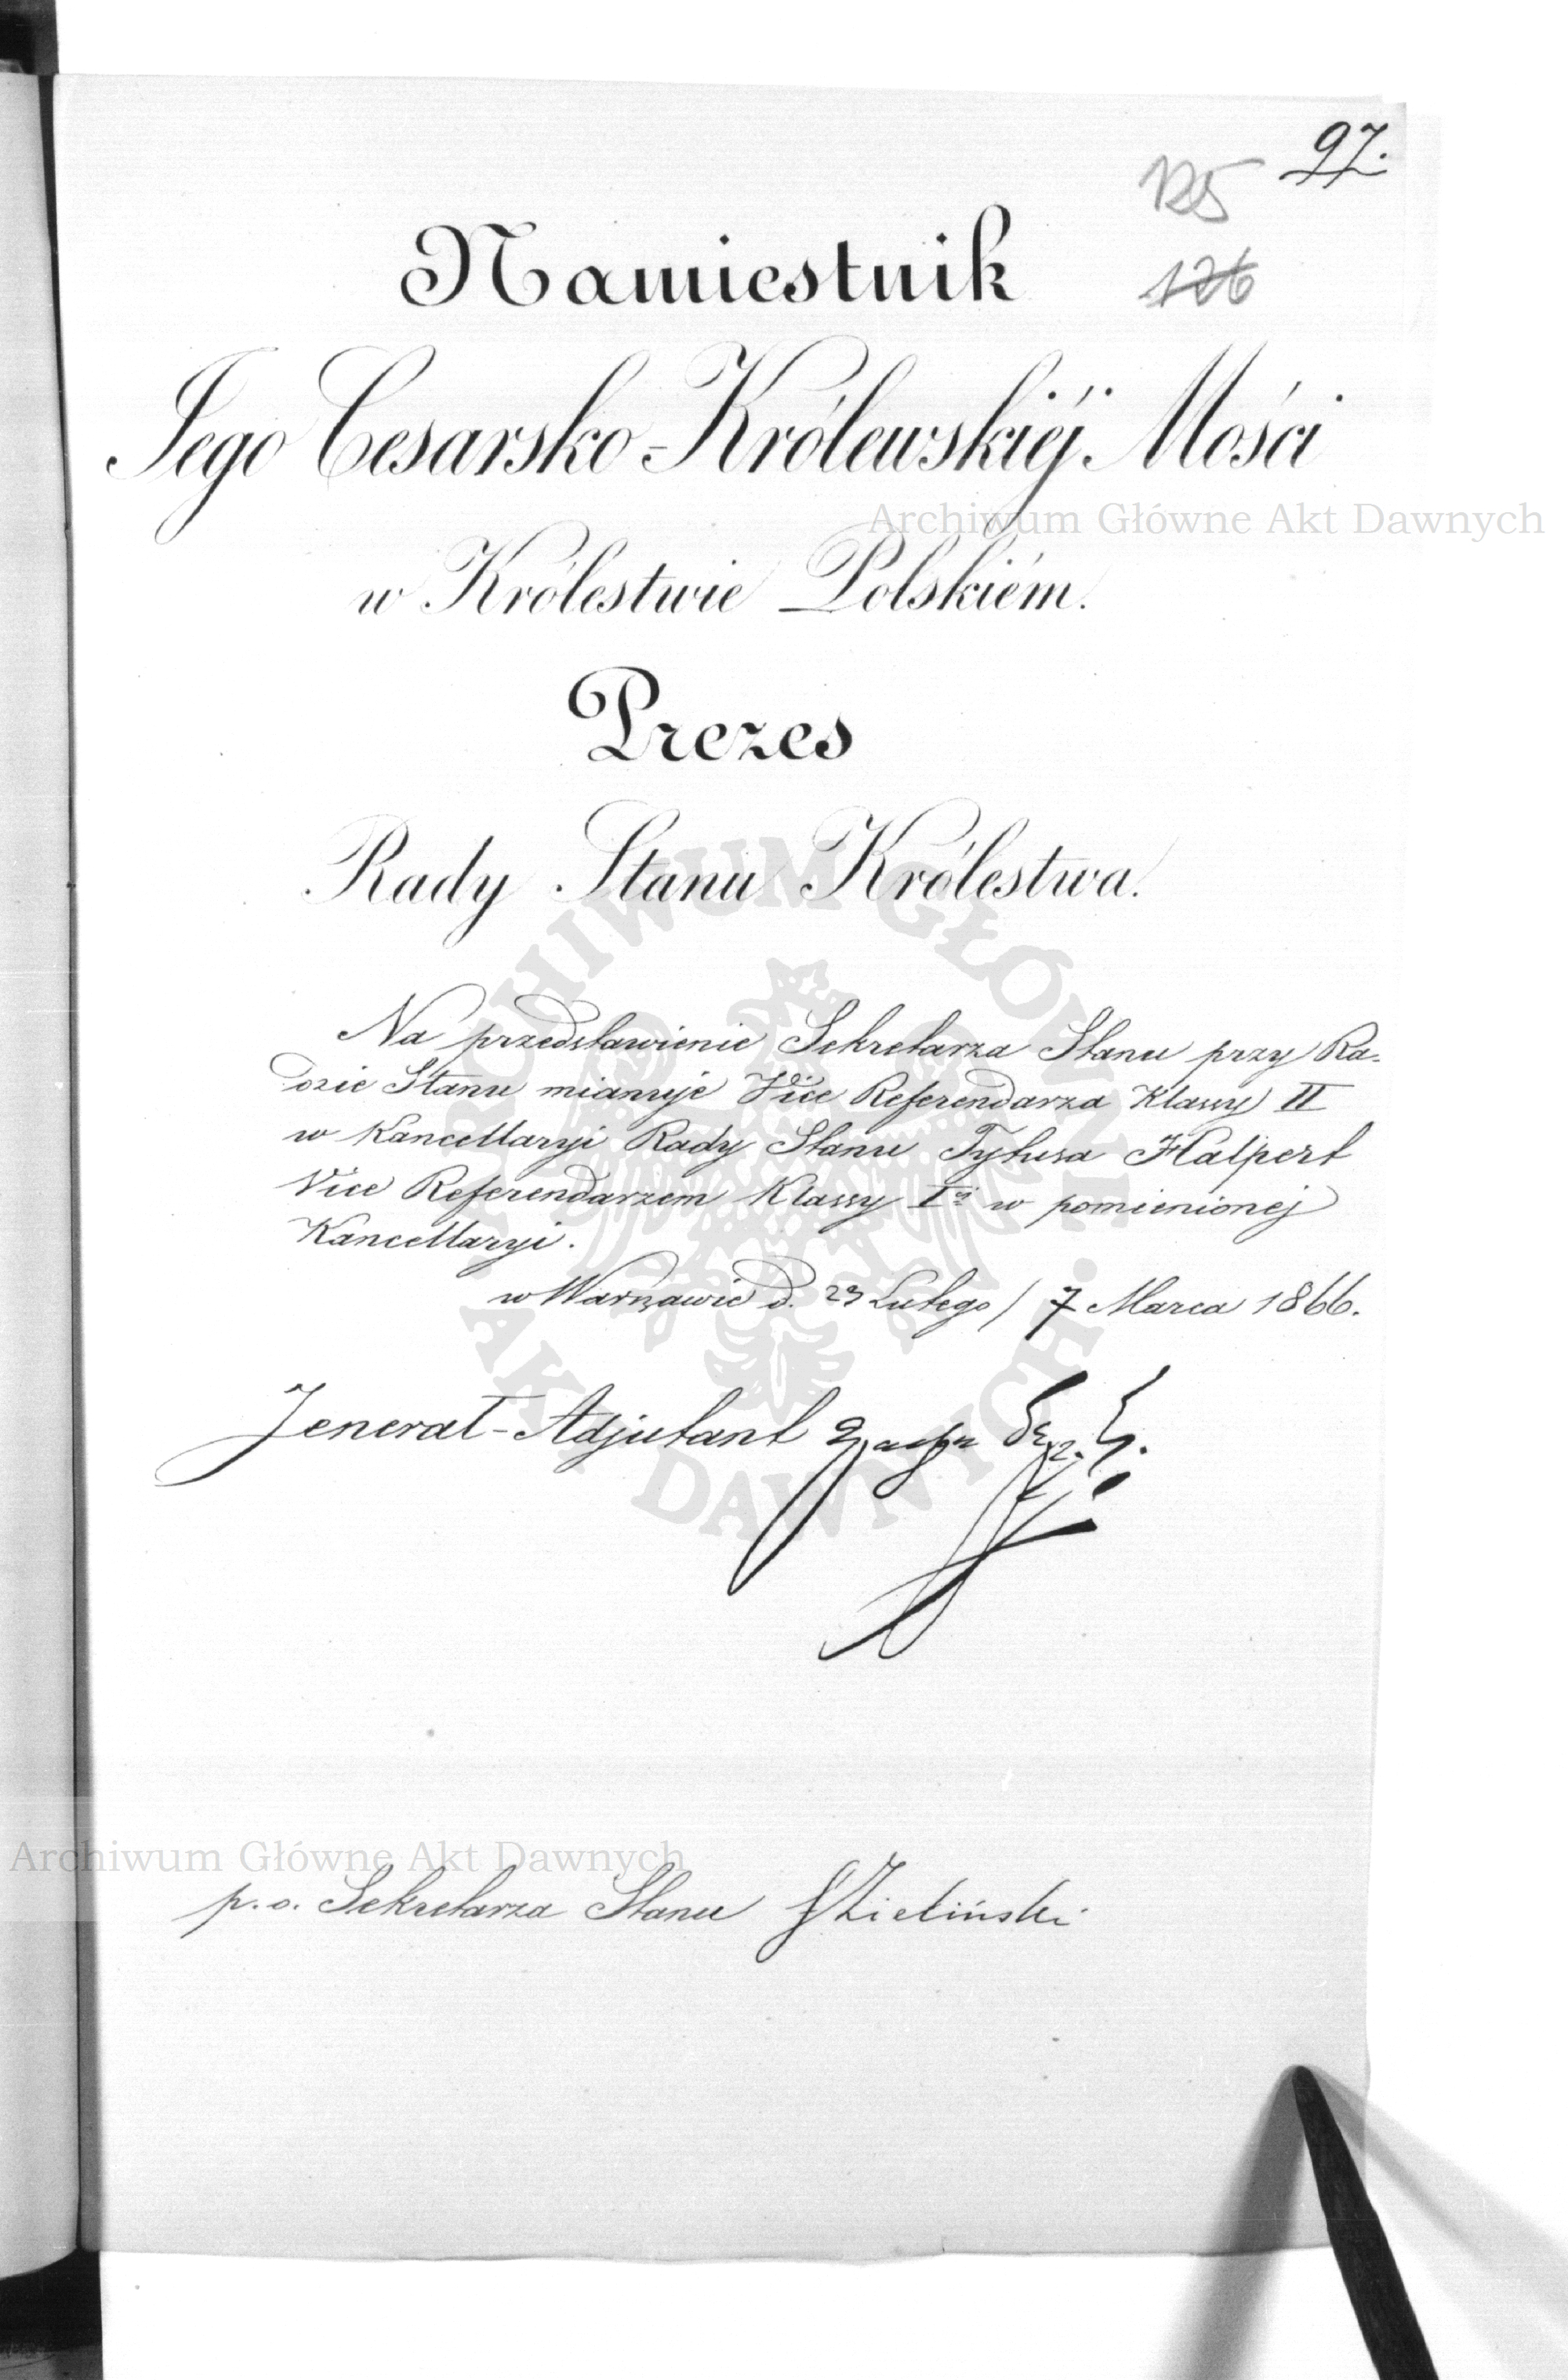 97.
125
126
Namiestnik
Jego Cesarsko-Królewskiéj Mości
Archiwum Główne Akt Dawnych
w Królestwie Polskiém.
Prezes
Rady Stanu Królestwa.
ARCHIWUM GŁÓWNE AKT DAWNYCH
Na przedstawienie Sekretarza Stanu przy Ra-
dzie Stanu mianuje Vice Referendarza Klassy II
w Kancellaryi Rady Stanu Tytusa Halpert
Vice Referendarzem Klassy I ej w pomienionej
Kancellaryi.
w Warszawie d. 23 Lutego / 7 Marca 1866.
Jenerał-Adjutant
Archiwum Główne Akt Dawnych
p.o. Sekretarza Stanu Zieliński